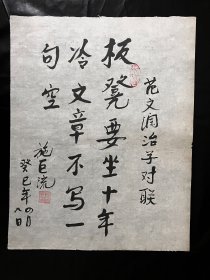 范文澜治学对联
板凳要坐十年
冷文章不写一
句空
施巨流
癸巳年四月
八日